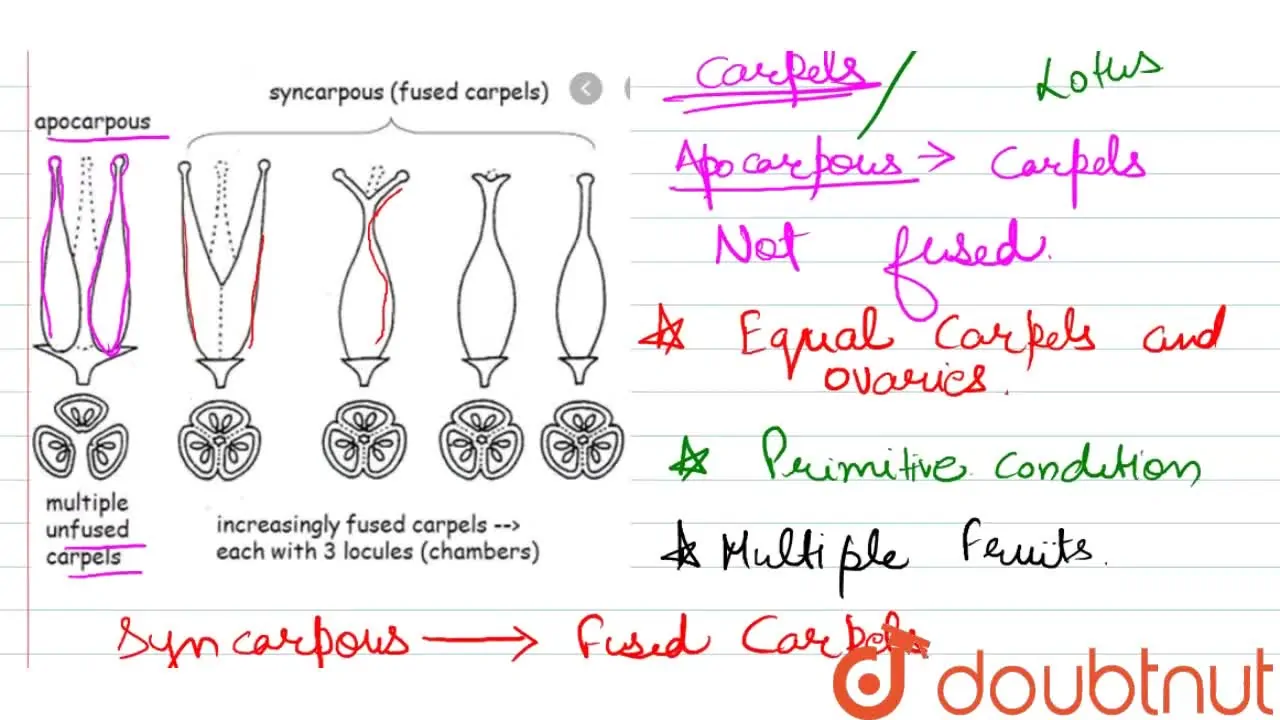 syncarpous (fused carpels)
apocarpous
multiple
unfused
carpels
increasingly fused carpels -->
each with 3 locules (chambers)
Carpels / Lotus
Apocarpous → Carpels
Not fused.
☆ Equal Carpels and
ovaries.
☆ Primitive condition
☆ Multiple Fruits.
Syncarpous → Fused Carpels
doubtnut